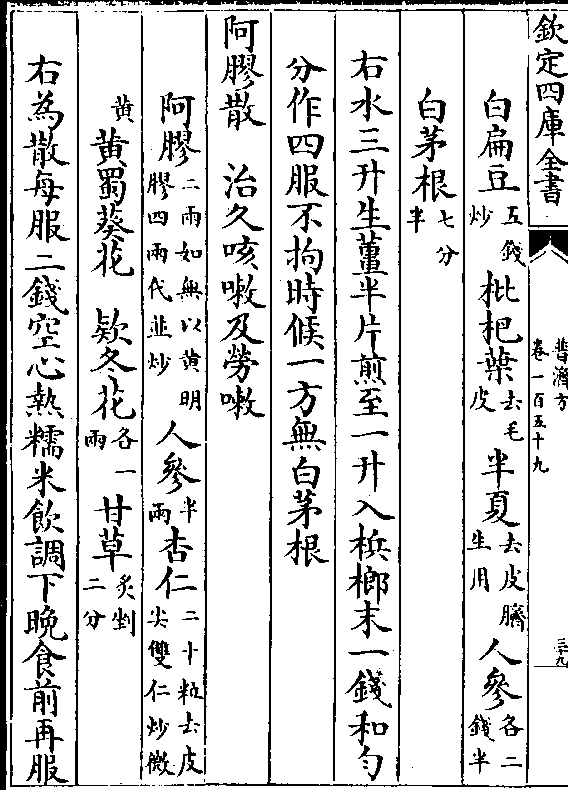 欽定四庫全書
普濟方
卷一百五十九
三十九
白扁豆五錢炒 枇杷葉去毛皮 半夏去�臍生用 人參各二錢半
白茅根七分半
右水三升生薑半片煎至一升入梹榔末一錢和勻
分作四服不拘時候一方無白茅根
阿膠散 治久咳嗽及勞嗽
阿膠二兩如無以黄明膠四兩代並炒 人參半兩 杏仁二十粒去皮尖雙仁炒微
黄 黄蜀葵花 欵冬花各一兩 甘草炙剉二分
右為散每服二錢空心熱糯米飲調下晩食前再服